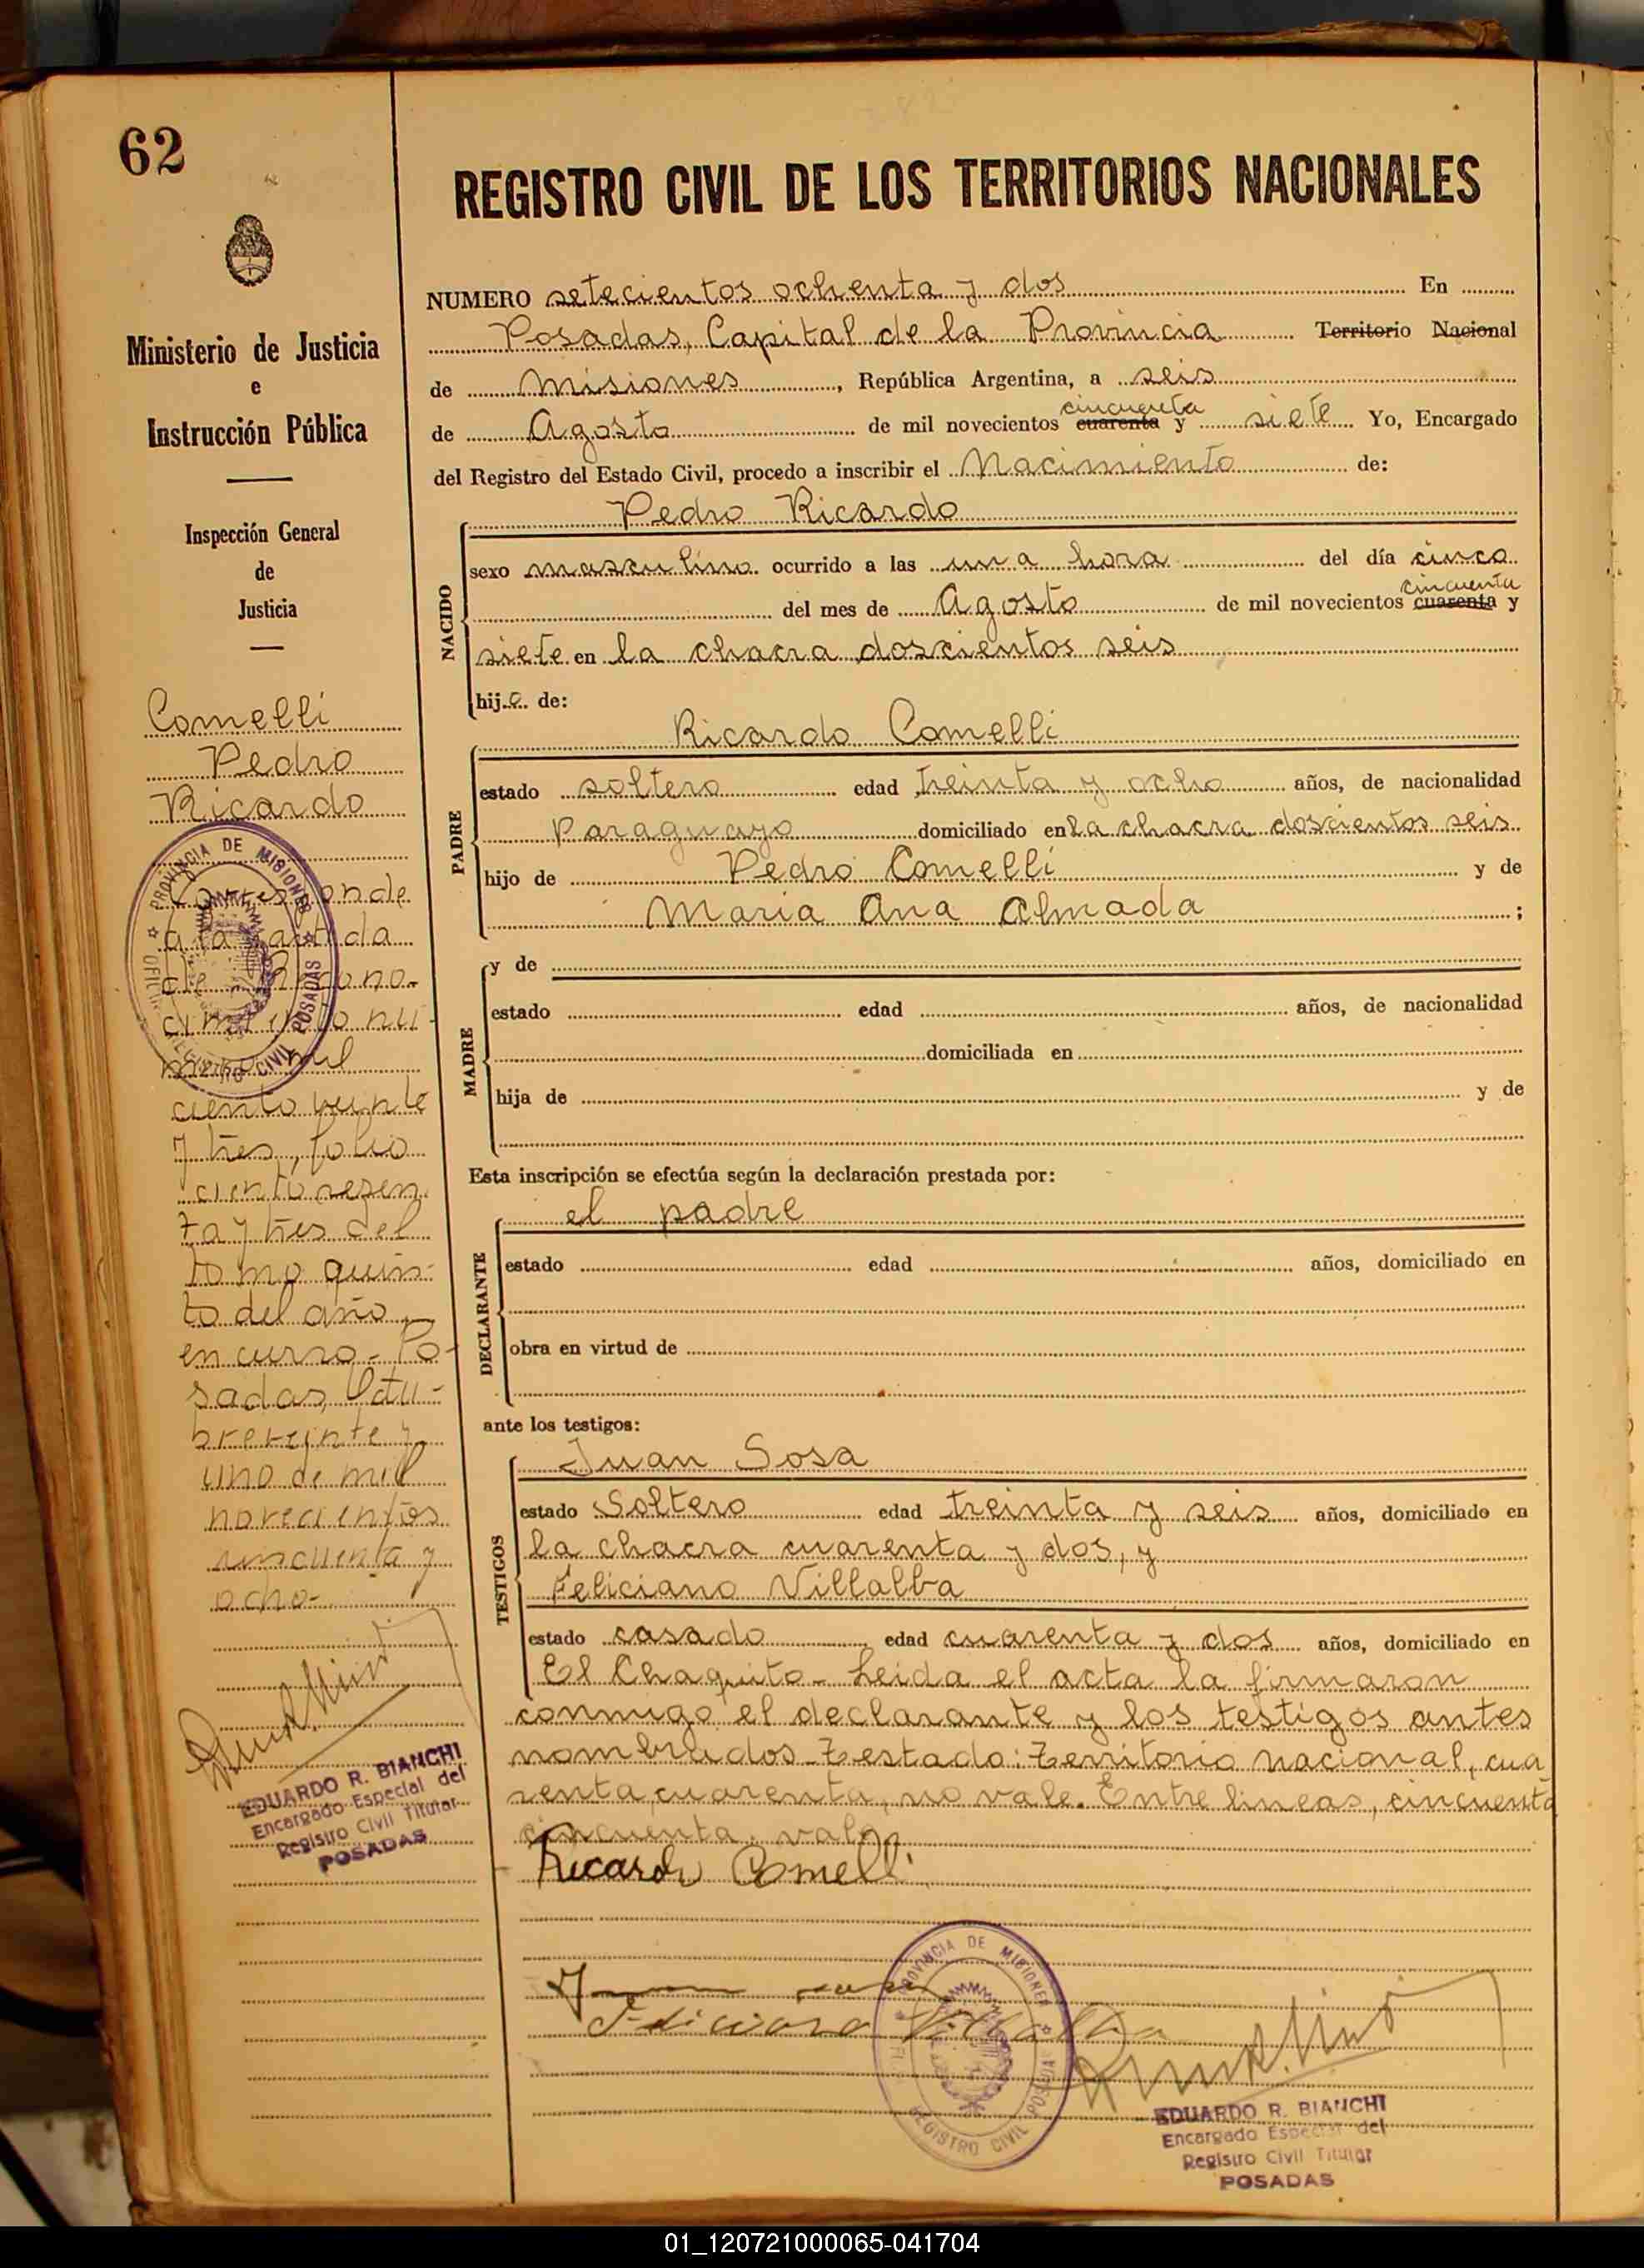 62
Ministerio de Justicia
e
Instrucción Pública
Inspección General
de
Justicia
Comelli
Pedro
Ricardo
Corresponde
a la partida
de Recono-
cimiento nú-
mero mil
ciento veinte
y tres, folio
ciento sesen
ta y tres del
tomo quin-
to del año
en curso - Po-
sadas, Octu-
bre veinte y
uno de mil
novecientos
cincuenta y
ocho-
PROVINCIA DE MISIONES
POSADAS
REGISTRO CIVIL
EDUARDO R. BIANCHI
Encargado Especial del
Registro Civil Titular
POSADAS
REGISTRO CIVIL DE LOS TERRITORIOS NACIONALES
NUMERO setecientos ochenta y dos En
Posadas, Capital de la Provincia Territorio Nacional
de Misiones, República Argentina, a seis
cincuenta
de Agosto de mil novecientos cuarenta y siete Yo, Encargado
del Registro del Estado Civil, procedo a inscribir el Nacimiento de:
Pedro Ricardo
NACIDO
sexo masculino ocurrido a las una hora del día cinco
cincuenta
del mes de Agosto de mil novecientos cuarenta y
siete en la chacra doscientos seis
hijo de:
Ricardo Comelli
PADRE
estado soltero edad treinta y ocho años, de nacionalidad
Paraguayo domiciliado en la chacra doscientos seis
hijo de Pedro Comelli y de
Maria Ana Almada ;
MADRE
y de
estado edad años, de nacionalidad
domiciliada en
hija de y de
Esta inscripción se efectúa según la declaración prestada por:
el padre
DECLARANTE
estado edad años, domiciliado en
obra en virtud de
ante los testigos:
Juan Sosa
TESTIGOS
estado Soltero edad treinta y seis años, domiciliado en
la chacra cuarenta y dos, y
Feliciano Villalba
estado casado edad cuarenta y dos años, domiciliado en
El Chaquito - Leida el acta la firmaron
conmigo el declarante y los testigos antes
nombrados - Testado: Territorio nacional, cua
renta, cuarenta, no vale. Entre lineas, cincuenta
cincuenta, vale
Ricardo Comelli
Juan Sosa
Feliciano Villalba
PROVINCIA DE MISIONES
POSADAS
REGISTRO CIVIL
EDUARDO R. BIANCHI
Encargado Especial del
Registro Civil Titular
POSADAS
01_120721000065-041704